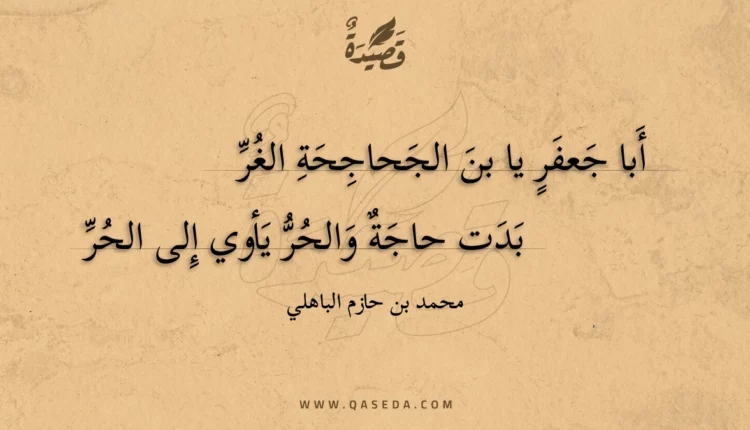 قَصِيْدَةٌ
أَبا جَعفَرٍ يا بنَ الجَحاجِحَةِ الغُرِّ
بَدَت حاجَةٌ وَالحُرُّ يَأوي إِلى الحُرِّ
محمد بن حازم الباهلي
WWW.QASEDA.COM